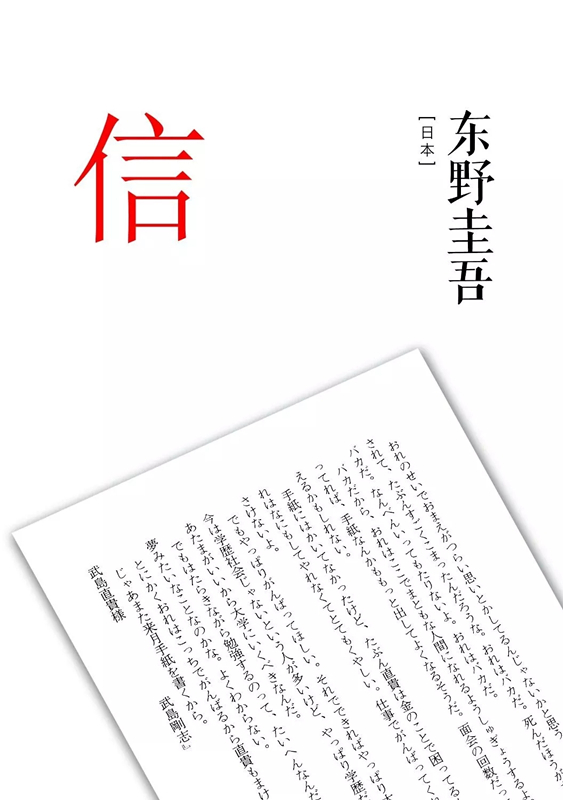 信
东野圭吾
[日本]
おれのせいでおまえがつらい思いとかしてるんじゃないかと思う
されて、たぶんすごくこまったんだろうな。おれはバカだ。死んだほうが
バカだ。なんべんいってもたりないよ。おれはバカだ。
バカだから、おれはここでまともな人間になれるようしゅぎょうするよ
ってれば、手紙なんかももっと出してよくなるそうだ。面会の回数だっ
えるかもしれない。
手紙にはかいてなかったけど、たぶん直貴は金のことで困ってる
れはなにもしてやれなくてとてもくやしい。仕事でがんばってく
さけないよ。
でもやっぱりがんばってほしい。それでできればやっぱり大
今は学歴社会じゃないという人が多いけど、やっぱり学歴だ
あたまがいいから大学にいくべきなんだ。
でもはたらきながら勉強するのって、たいへんなんだ
夢みたいなことなのかな。よくわからない。
とにかくおれはこっちでがんばるから直貴もまけ
じゃあまた来月手紙を書くから。
武島直貴様
武島剛志』